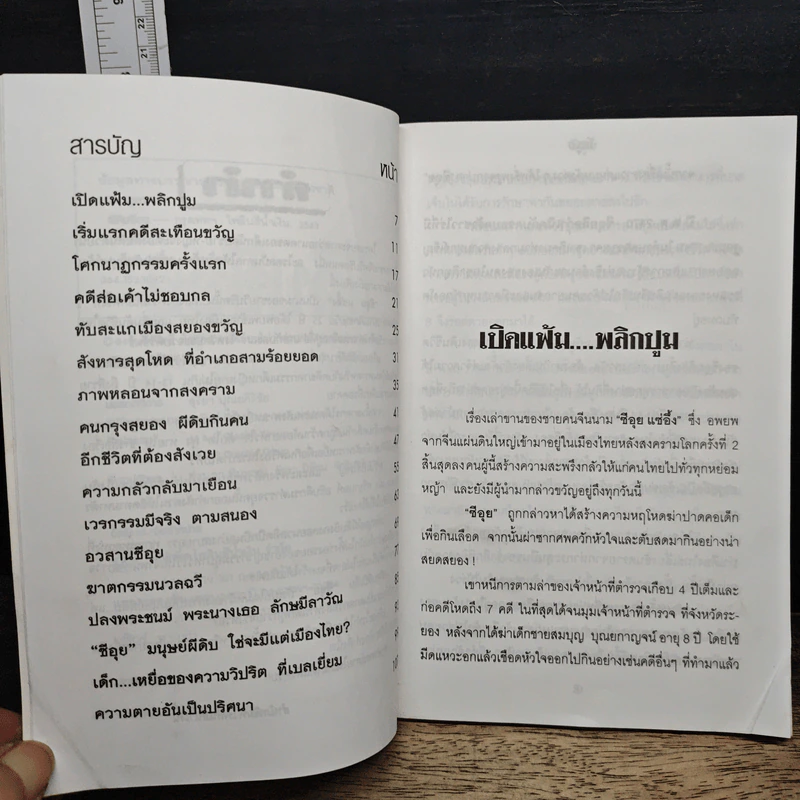 สารบัญ
หน้า
เปิดแฟ้ม...พลิกปูม 7
เริ่มแรกคดีสะเทือนขวัญ 11
โศกนาฏกรรมครั้งแรก 17
คดีส่อเค้าไม่ชอบกล 21
ทับสะแกเมืองสยองขวัญ 25
สังหารสุดโหด ที่อำเภอสามร้อยยอด 31
ภาพหลอนจากสงคราม 35
คนกรุงสยอง ผีดิบกินคน 41
อีกชีวิตที่ต้องสังเวย 47
ความกลัวกลับมาเยือน 55
เวรกรรมมีจริง ตามสนอง 63
อวสานซีอุย 69
ฆาตกรรมนวลฉวี
ปลงพระชนม์ พระนางเธอ ลักษมีลาวัณ
"ซีอุย" มนุษย์ผีดิบ ใช่จะมีแต่เมืองไทย?
เด็ก...เหยื่อของความวิปริต ที่เบลเยี่ยม
ความตายอันเป็นปริศนา
เปิดแฟ้ม....พลิกปูม
เรื่องเล่าขานของชายคนจีนนาม "ซีอุย แซ่อึ้ง" ซึ่ง อพยพ
จากจีนแผ่นดินใหญ่เข้ามาอยู่ในเมืองไทยหลังสงครามโลกครั้งที่ 2
สิ้นสุดลงคนผู้นี้สร้างความสะพรึงกลัวให้แก่คนไทยไปทั่วทุกหย่อม
หญ้า และยังมีผู้นำมากล่าวขวัญอยู่ถึงทุกวันนี้
"ซีอุย" ถูกกล่าวหาได้สร้างความหฤโหดฆ่าปาดคอเด็ก
เพื่อกินเลือด จากนั้นผ่าซากศพควักหัวใจและตับสดมากินอย่างน่า
สยดสยอง !
เขาหนีการตามล่าของเจ้าหน้าที่ตำรวจเกือบ 4 ปีเต็มและ
ก่อคดีโหดถึง 7 คดี ในที่สุดได้จนมุมเจ้าหน้าที่ตำรวจ ที่จังหวัดระ-
ยอง หลังจากได้ฆ่าเด็กชายสมบุญ บุณยกาญจน์ อายุ 8 ปี โดยใช้
มีดแหวะอกแล้วเชือดหัวใจออกไปกินอย่างเช่นคดีอื่นๆ ที่ทำมาแล้ว